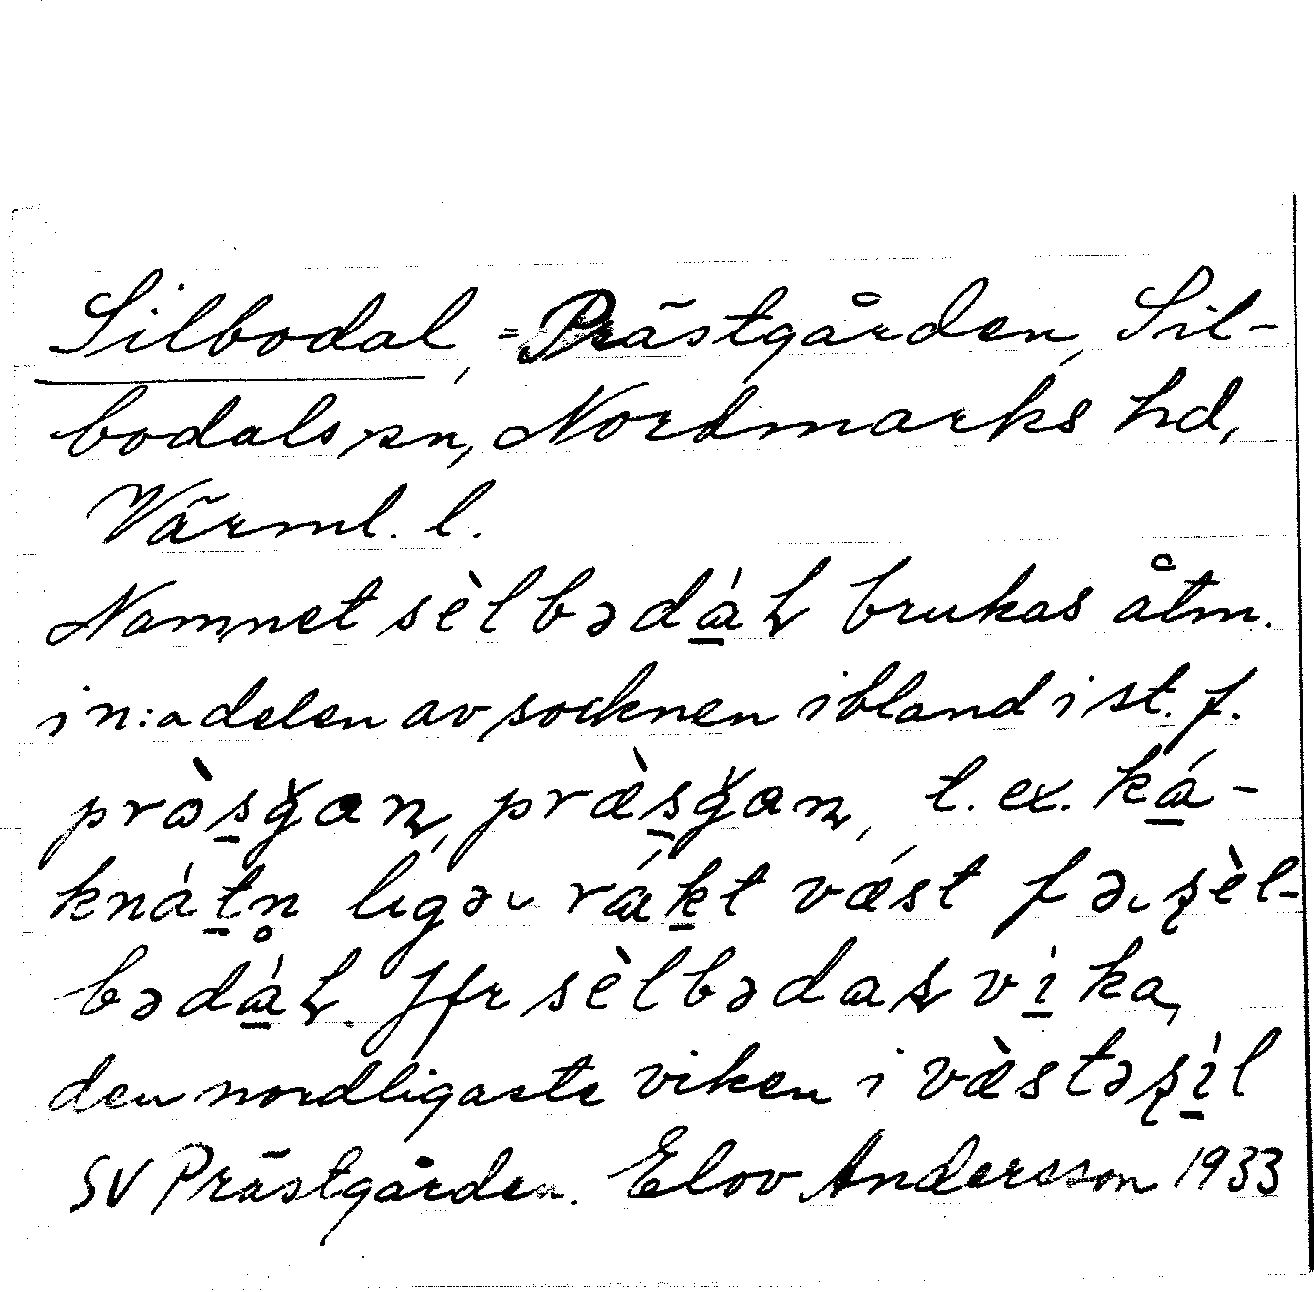 Silbodal, = Prästgården, Sil-
bodals sn, Nordmarks hd,
Värml. l.
Namnet sèlbədáɫ brukas åtm.
i n:a delen av socknen ibland i st. f.
t. ex. ká-
knátn̥ ligəɩ rákt væst fəɩ ʂèl-
bədáɫ. Jfr sèlbədaɫ víka,
den nordligaste viken i væ̀stəʂíl
SV Prästgården. Elov Andersson 1933